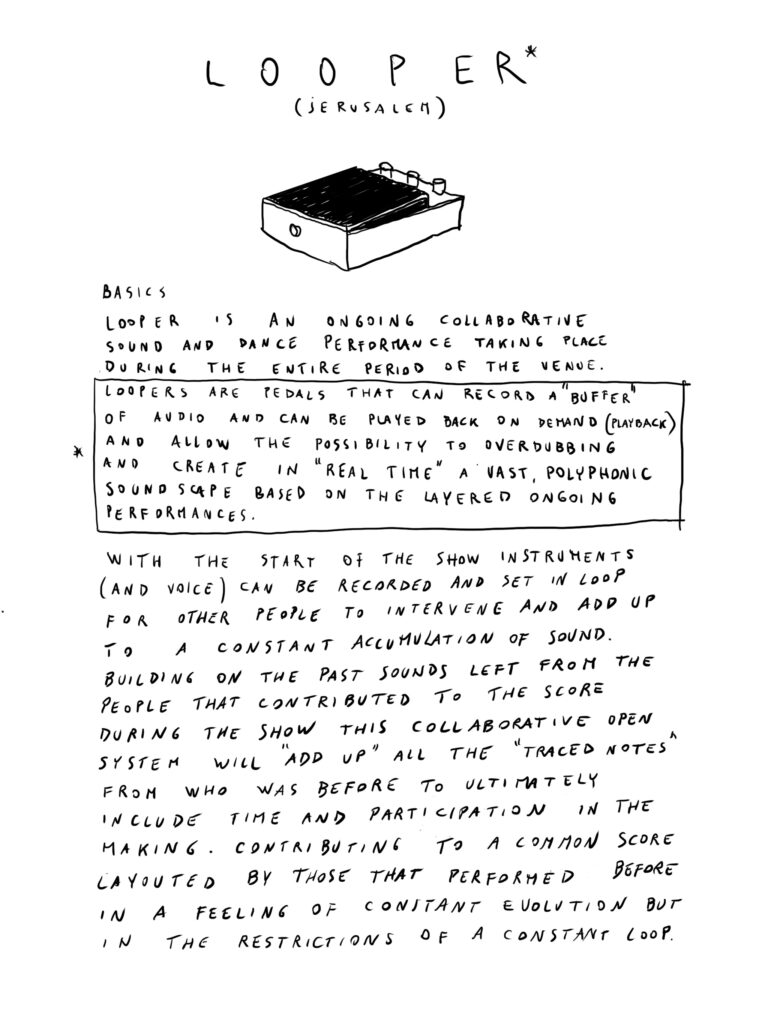 LOOPER*
(JERUSALEM)
BASICS
LOOPER IS AN ONGOING COLLABORATIVE
SOUND AND DANCE PERFORMANCE TAKING PLACE
DURING THE ENTIRE PERIOD OF THE VENUE.
LOOPERS ARE PEDALS THAT CAN RECORD A "BUFFER"
OF AUDIO AND CAN BE PLAYED BACK ON DEMAND (PLAYBACK)
* AND ALLOW THE POSSIBILITY TO OVERDUBBING
AND CREATE IN "REAL TIME" A VAST, POLYPHONIC
SOUNDSCAPE BASED ON THE LAYERED ONGOING
PERFORMANCES.
WITH THE START OF THE SHOW INSTRUMENTS
(AND VOICE) CAN BE RECORDED AND SET IN LOOP
FOR OTHER PEOPLE TO INTERVENE AND ADD UP
TO A CONSTANT ACCUMULATION OF SOUND.
BUILDING ON THE PAST SOUNDS LEFT FROM THE
PEOPLE THAT CONTRIBUTED TO THE SCORE
DURING THE SHOW THIS COLLABORATIVE OPEN
SYSTEM WILL "ADD UP" ALL THE "TRACED NOTES"
FROM WHO WAS BEFORE TO ULTIMATELY
INCLUDE TIME AND PARTICIPATION IN THE
MAKING. CONTRIBUTING TO A COMMON SCORE
LAYOUTED BY THOSE THAT PERFORMED BEFORE
IN A FEELING OF CONSTANT EVOLUTION BUT
IN THE RESTRICTIONS OF A CONSTANT LOOP.